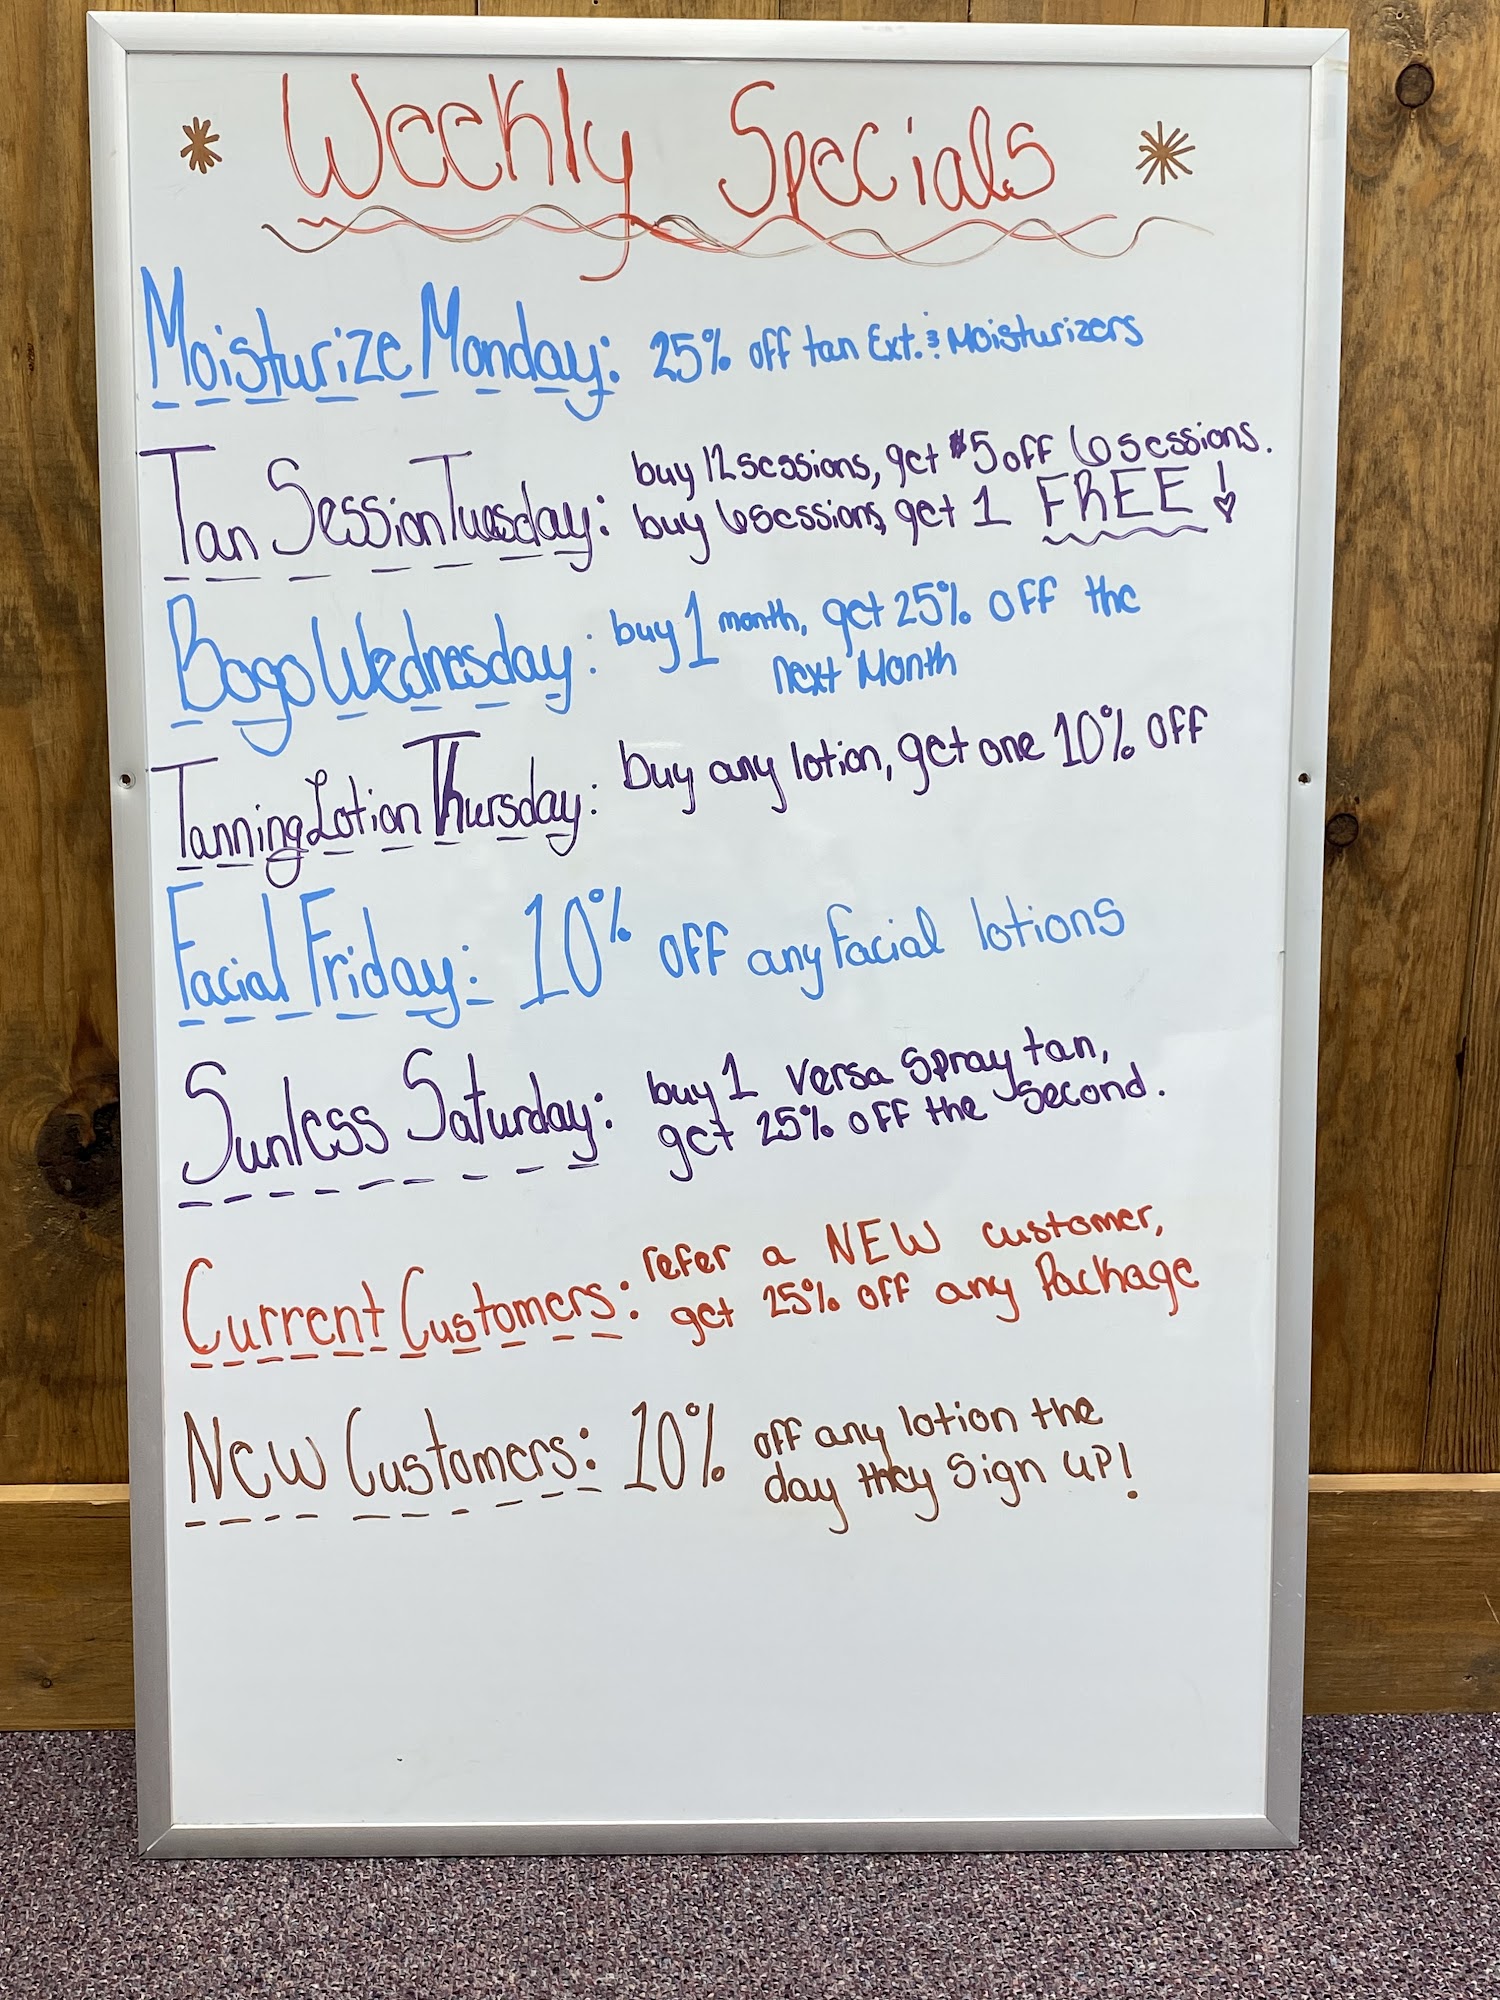 * Weekly Specials *
Moisturize Monday: 25% off tan Ext. & Moisturizers
Tan Session Tuesday: buy 12 sessions, get $5 off 6 sessions.
buy 6 sessions, get 1 FREE!
Bogo Wednesday: buy 1 month, get 25% off the
next Month
Tanning Lotion Thursday: buy any lotion, get one 10% off
Facial Friday: 10% off any facial lotions
Sunless Saturday: buy 1 Versa Spray tan,
get 25% off the second.
Current Customers: refer a NEW customer,
get 25% off any Package
New Customers: 10% off any lotion the
day they sign up!